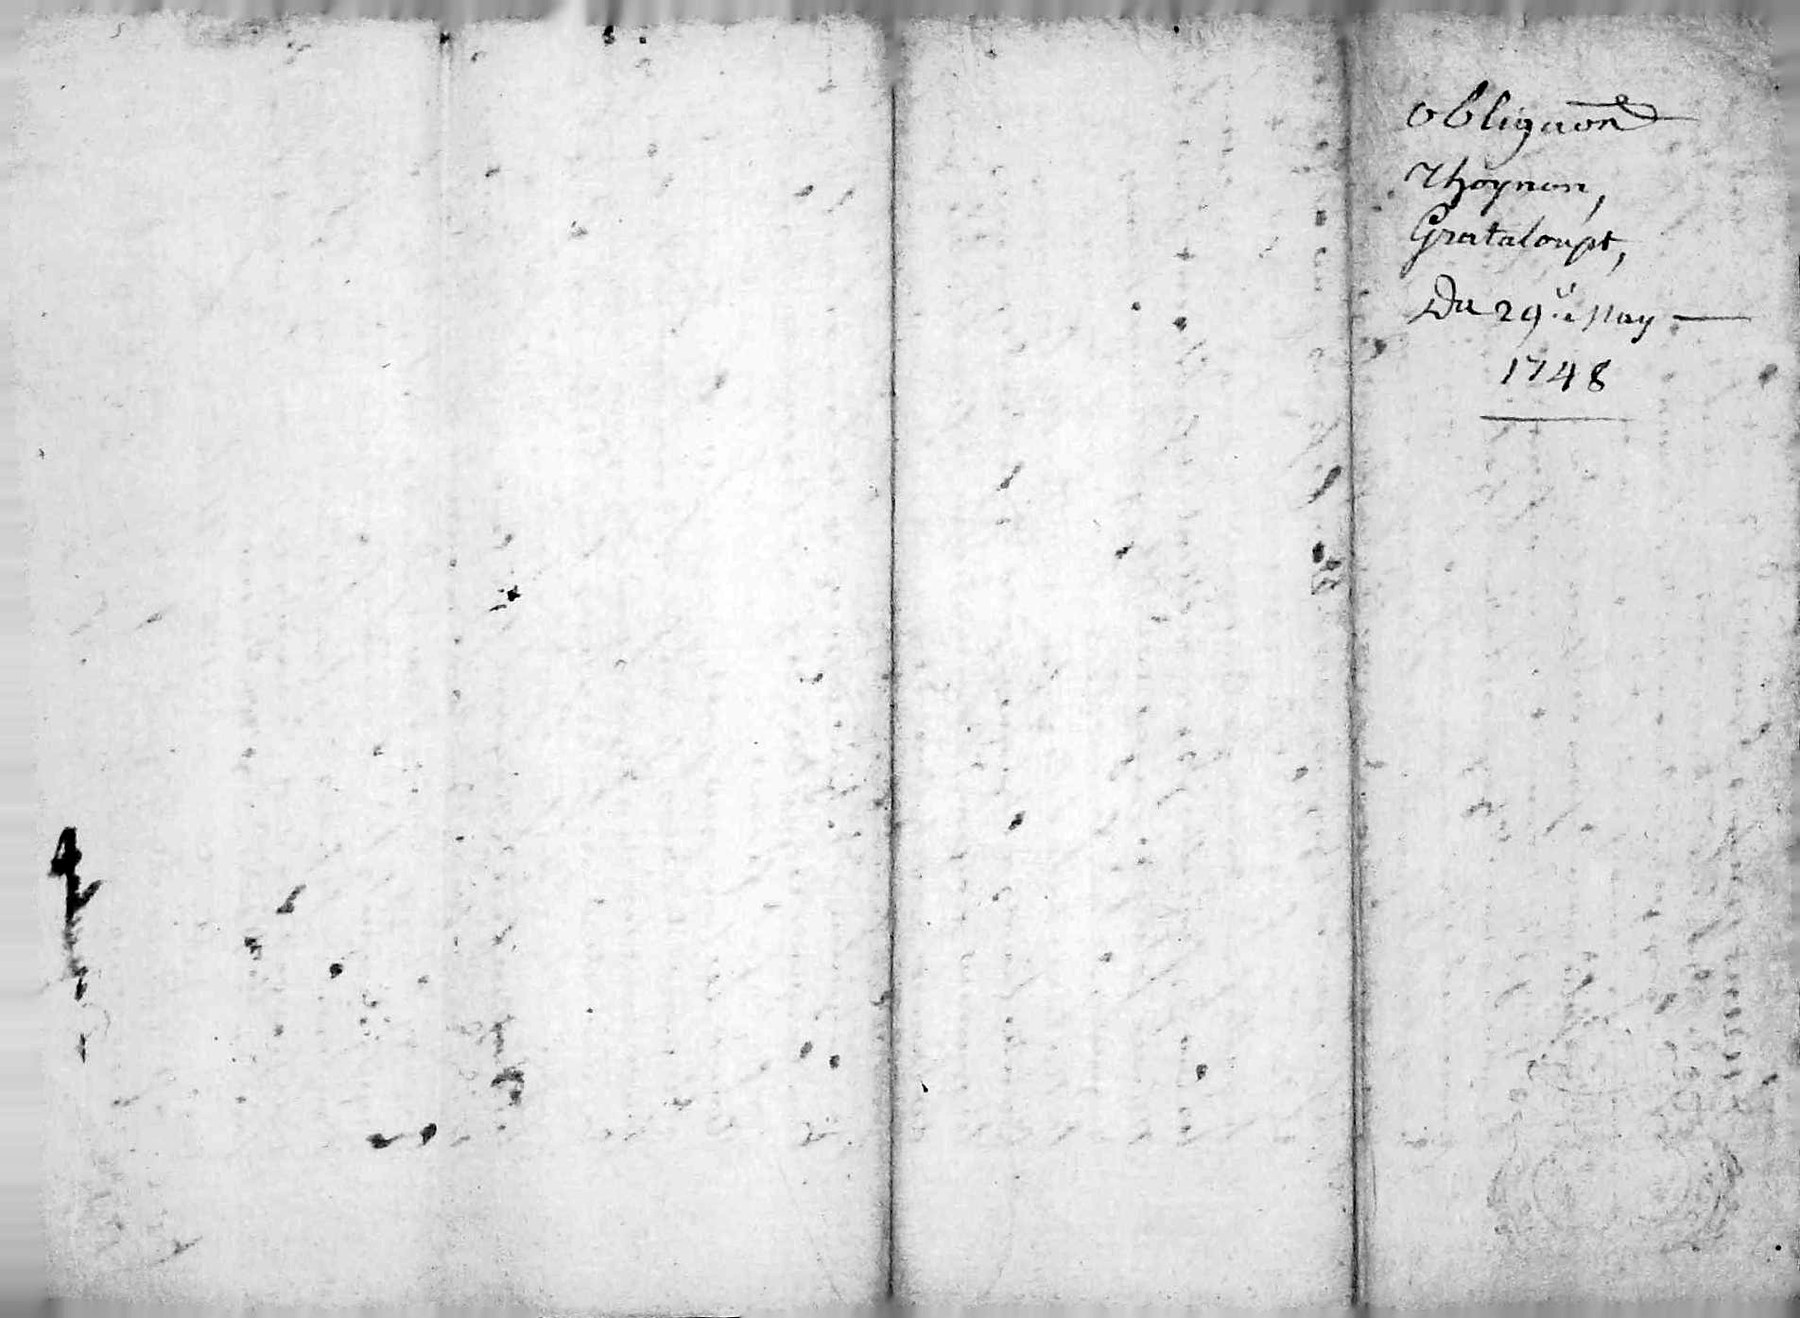 obligaon
Thoynon,
Grataloupt,
Du 29.e May
1748